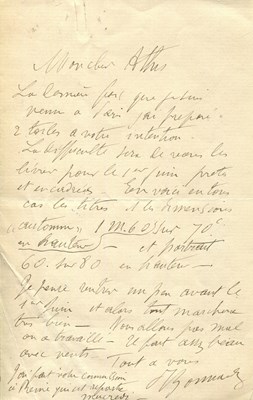 Mon cher Athis
La dernière fois que je suis
venu à Paris j'ai préparé
2 toiles à votre intention.
La difficulté sera de vous les
livrer pour le 1er juin prêts
et encadrées. En voici en tous
cas les titres et les dimensions
"automne" 1 m. 60 sur 70c
en hauteur) — et portrait
60. sur 80 en hauteur —
Je pense rentrer un peu avant le
1er juin et alors tout marchera
très bien — Nous allons pas mal
on a travaillé — Il fait assez beau
avec vents. Tout à vous
J'ai fait votre commission
à qui est reparti
mercredi. Bonnard